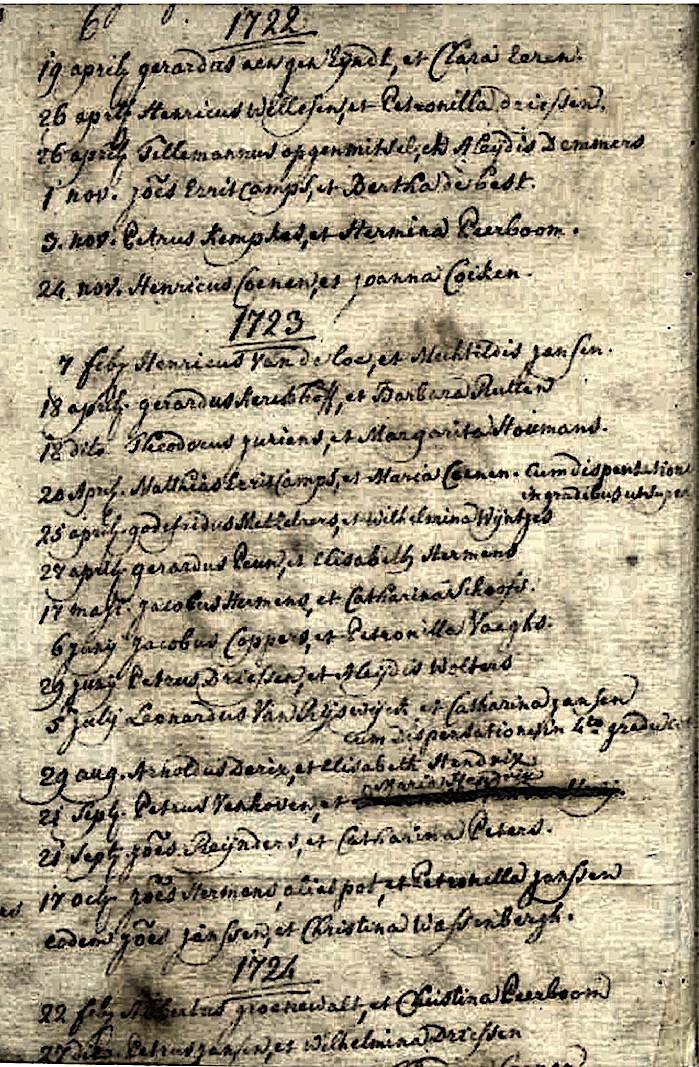 6
1722
19 april gerardus aengen Eyndt, et Clara Eeren.
26 april Henricus Willesen, et Petronilla driessen.
26 april Tillemannus opgenmitsel, et Aleydis Demmers
1 nov. joēs Erritcamps, et Bertha de best.
3. nov. Petrus Kempkes, et Hermina Peerboom.
24 nov. Henricus Coenen, et joanna Cocken.
1723
7 feb Henricus Van de loe, et Mechtildis jansen.
18 april gerardus Kerckhoff, et Barbara Rutten
18 dito Theodorus juriens, et Margarita Houmans.
20 April. Matthias Erritcamps, et Maria Coenen. Cum dispensatione
in gradibus ut super
25 april godefridus, et Wilhelmina Wyntjes
27 april gerardus Peun, et Elisabeth Hermens
17 maji. jacobus Hermens, et Catharina Schoofs.
6 junij jacobus Coppers, et Petronilla Vaeghs.
29 junij Petrus Driessen, et Aleydis Wolters
5 julij Leonardus Van Rijswijck et Catharina jansen
cum dispensatione in 4to gradu
29 aug. Arnoldus Derix, et Elisabeth Hendrix
21 Sept. Petrus Venhoven, et Maria Hendrix
21 Sept. joēs Reijnders, et Catharina Peters.
17 oct joēs Hermens, alias pot, et Petronilla janssen
eodem joēs janssen, et Christina Wassenbergh.
1724
22 feb groenewalt, et Christina Peerboom
27 dito. Petrus jansen, et Wilhelmina Driessen